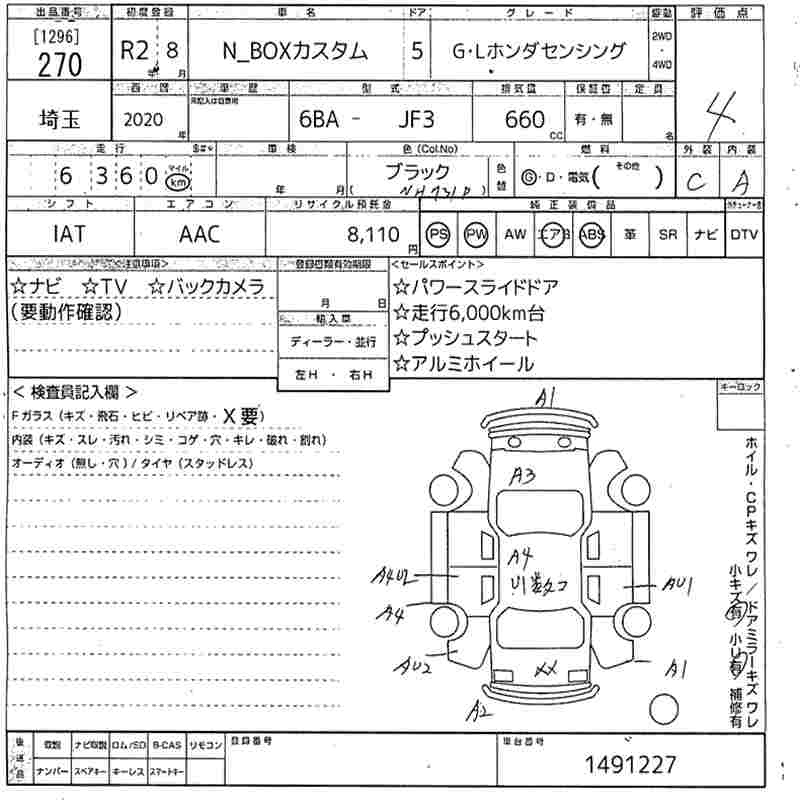 出品番号 初度登録 車名 ドア グレード 駆動 評価点
[1296]
270
R2 8 N_BOXカスタム 5 G・Lホンダセンシング 2WD・4WD
年 月
4
車歴 型式 排気量 保証書 定員
埼玉 2020 6BA - JF3 660 有・無
年 CC 名
走行 車検 色(Col.No) 燃料 外装 内装
6 3 6 0 マイル km 年 月 ブラック 色替 G・D・電気( その他 )
(NH731P) C A
シフト エアコン リサイクル預託金 純正装備品
IAT AAC 8,110円 PS PW AW エアB ABS 革 SR ナビ DTV
登録書類有効期限 <セールスポイント>
☆ナビ ☆TV ☆バックカメラ
(要動作確認)
月 日
輸入車
ディーラー・並行
左H ・ 右H
☆パワースライドドア
☆走行6,000km台
☆プッシュスタート
☆アルミホイール
< 検査員記入欄 >
Fガラス(キズ・飛石・ヒビ・リペア跡・X要)
内装(キズ・スレ・汚れ・シミ・コゲ・穴・キレ・破れ・割れ)
オーディオ(無し・穴)/タイヤ(スタッドレス)
キーロック
A1
A3
A4
A4U2
A4
AU2
A2
AU1
A1
XX
ホイル・CPキズ ワレ/ドアミラーキズ ワレ
小キズ有 小U有 補修有
後送品 取説 ナビ取説 ロム/SD B-CAS リモコン
ナンバー スペアキー キーレス スマートキー
登録番号
車台番号
1491227